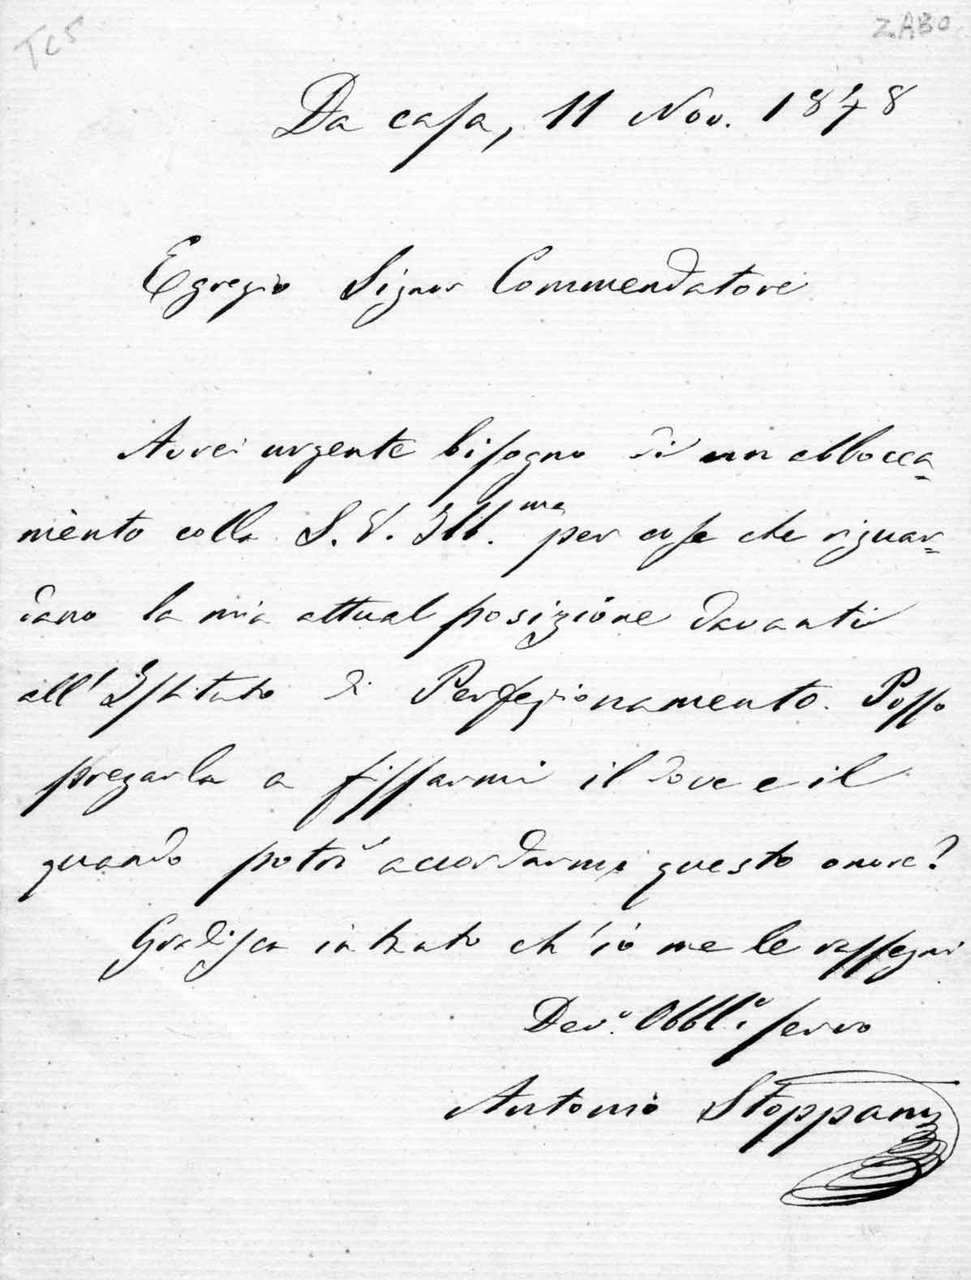 TC5
ZABO
Da casa, 11 Nov. 1878
Egregio Signor Commendatore
Avrei urgente bisogno di un abbocca=
mento colla S. V. Ill.ma per cose che riguar=
dano la mia attual posizione davanti
all'Istituto di Perfezionamento. Posso
pregarla a fissarmi il dove e il
quando potrà accordarmi questo onore?
Gradisca intanto ch'io me le rassegni
Dev.o Obbl.o servo
Antonio Stoppani